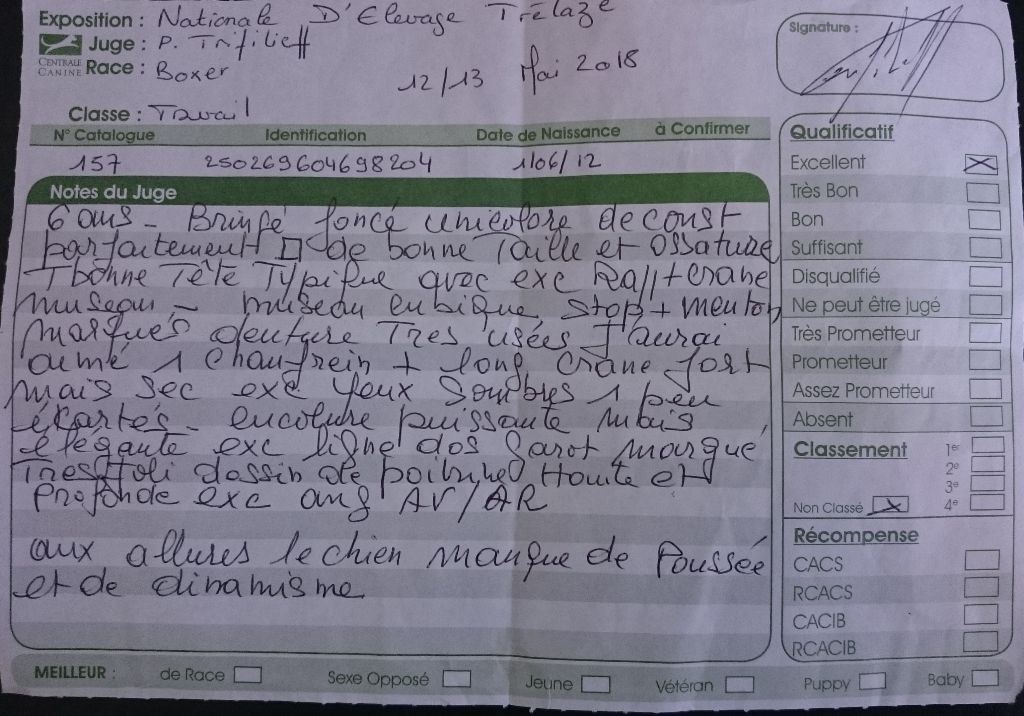 Exposition : Nationale D'Elevage Trélazé
Juge : P. Trifilieff
CENTRALE CANINE
Race : Boxer
12/13 Mai 2018
Classe : Travail
Signature :
N° Catalogue Identification Date de Naissance à Confirmer
157 250269604698204 1/06/12
Notes du Juge
6 ans - Bringé foncé unicolore de const
parfaitement □ de bonne Taille et Ossature
T bonne Tête Typique avec exc Rapp + crane
museau - museau cubique Stop + menton
marqués denture Tres usées J'aurai
aimé 1 chanfrein + long crane fort
mais sec exc Yeux Sombres 1 peu
écartés - encolure puissante mais
élégante exc ligne dos Garot marqué
Tres joli dessin de poitrine Haute et
Profonde exc ang AV/AR
aux allures le chien manque de Poussée
et de dinamisme
Qualificatif
Excellent X
Très Bon
Bon
Suffisant
Disqualifié
Ne peut être jugé
Très Prometteur
Prometteur
Assez Prometteur
Absent
Classement
1er
2e
3e
4e
Non Classé X
Récompense
CACS
RCACS
CACIB
RCACIB
MEILLEUR : de Race Sexe Opposé Jeune Vétéran Puppy Baby